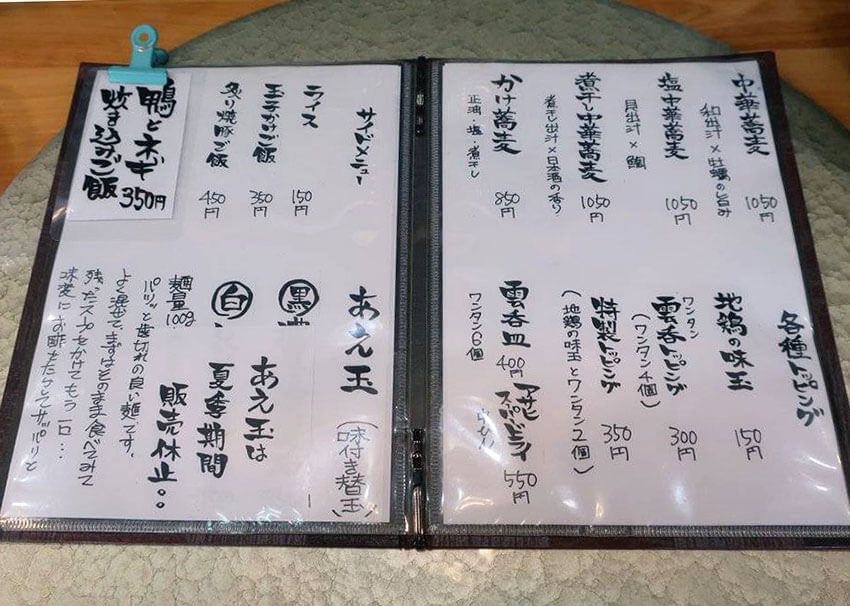 中華蕎麦 1050円
和出汁×牡蠣の旨み
塩中華蕎麦 1050円
貝出汁×鯛
煮干し中華蕎麦 1050円
煮干し出汁×日本酒の香り
かけ蕎麦 850円
正油・塩・煮干し
各種トッピング
地鶏の味玉 150円
ワンタン
雲呑トッピング 300円
(ワンタン4個)
特製トッピング 350円
(地鶏の味玉とワンタン2個)
雲呑皿 400円
ワンタン6個
アサヒ
スーパードライ 550円
サイドメニュー
ライス 150円
玉子かけご飯 350円
炙り焼豚ご飯 450円
鴨とネギ
炊き込みご飯 350円
あえ玉 (味付き替玉)
黒
白
あえ玉は
夏季期間
販売休止。。
麺量100g
パツッと歯切れの良い麺です。
よく混ぜて、まずはそのまま食べてみて
残ったスープをかけてもう一口…
味変にお酢をたらしてサッパリと